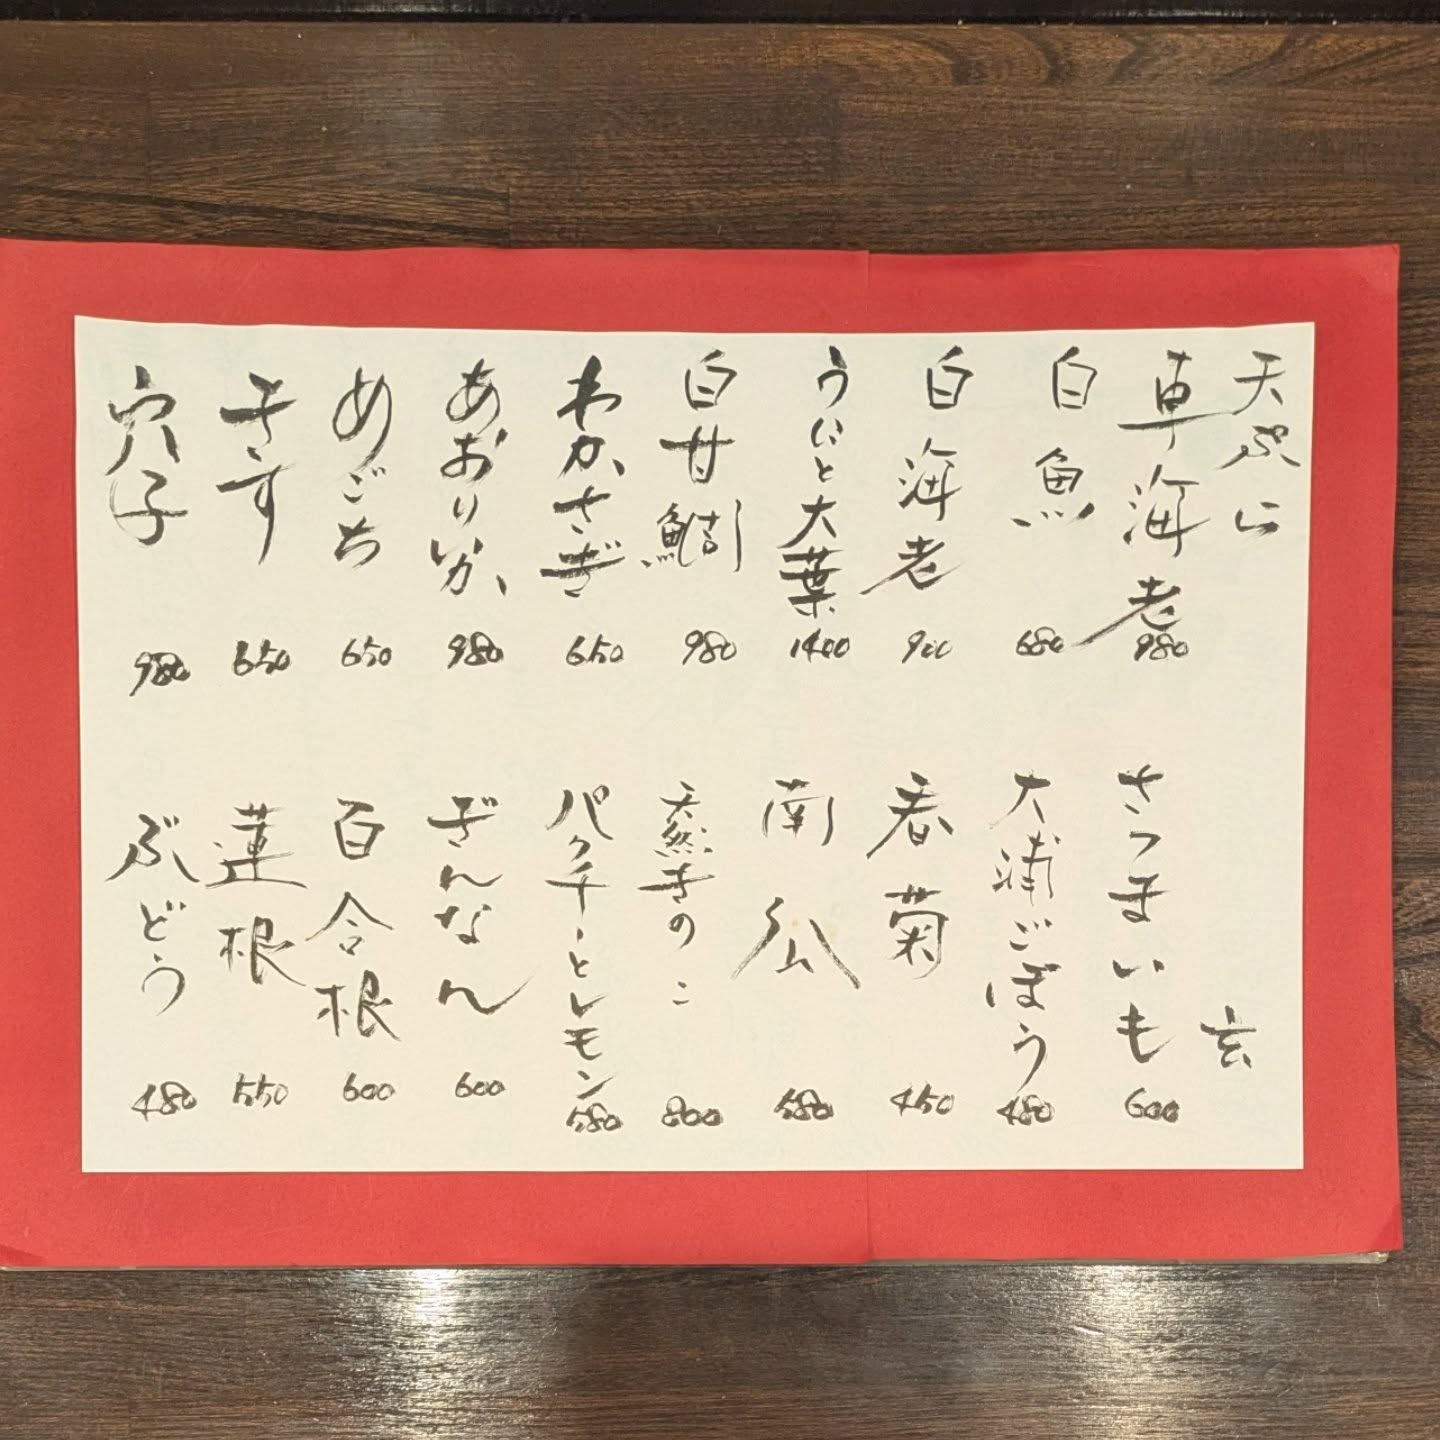 天ぷら
車海老 980
白魚 680
白海老 900
うにと大葉 1400
白甘鯛 980
わかさぎ 650
あおりいか 980
めごち 650
きす 650
穴子 980
さつまいも 600
大浦ごぼう 480
春菊 450
南瓜 580
天然きのこ 800
パクチーとレモン 580
ぎんなん 600
百合根 600
蓮根 550
ぶどう 480
玄